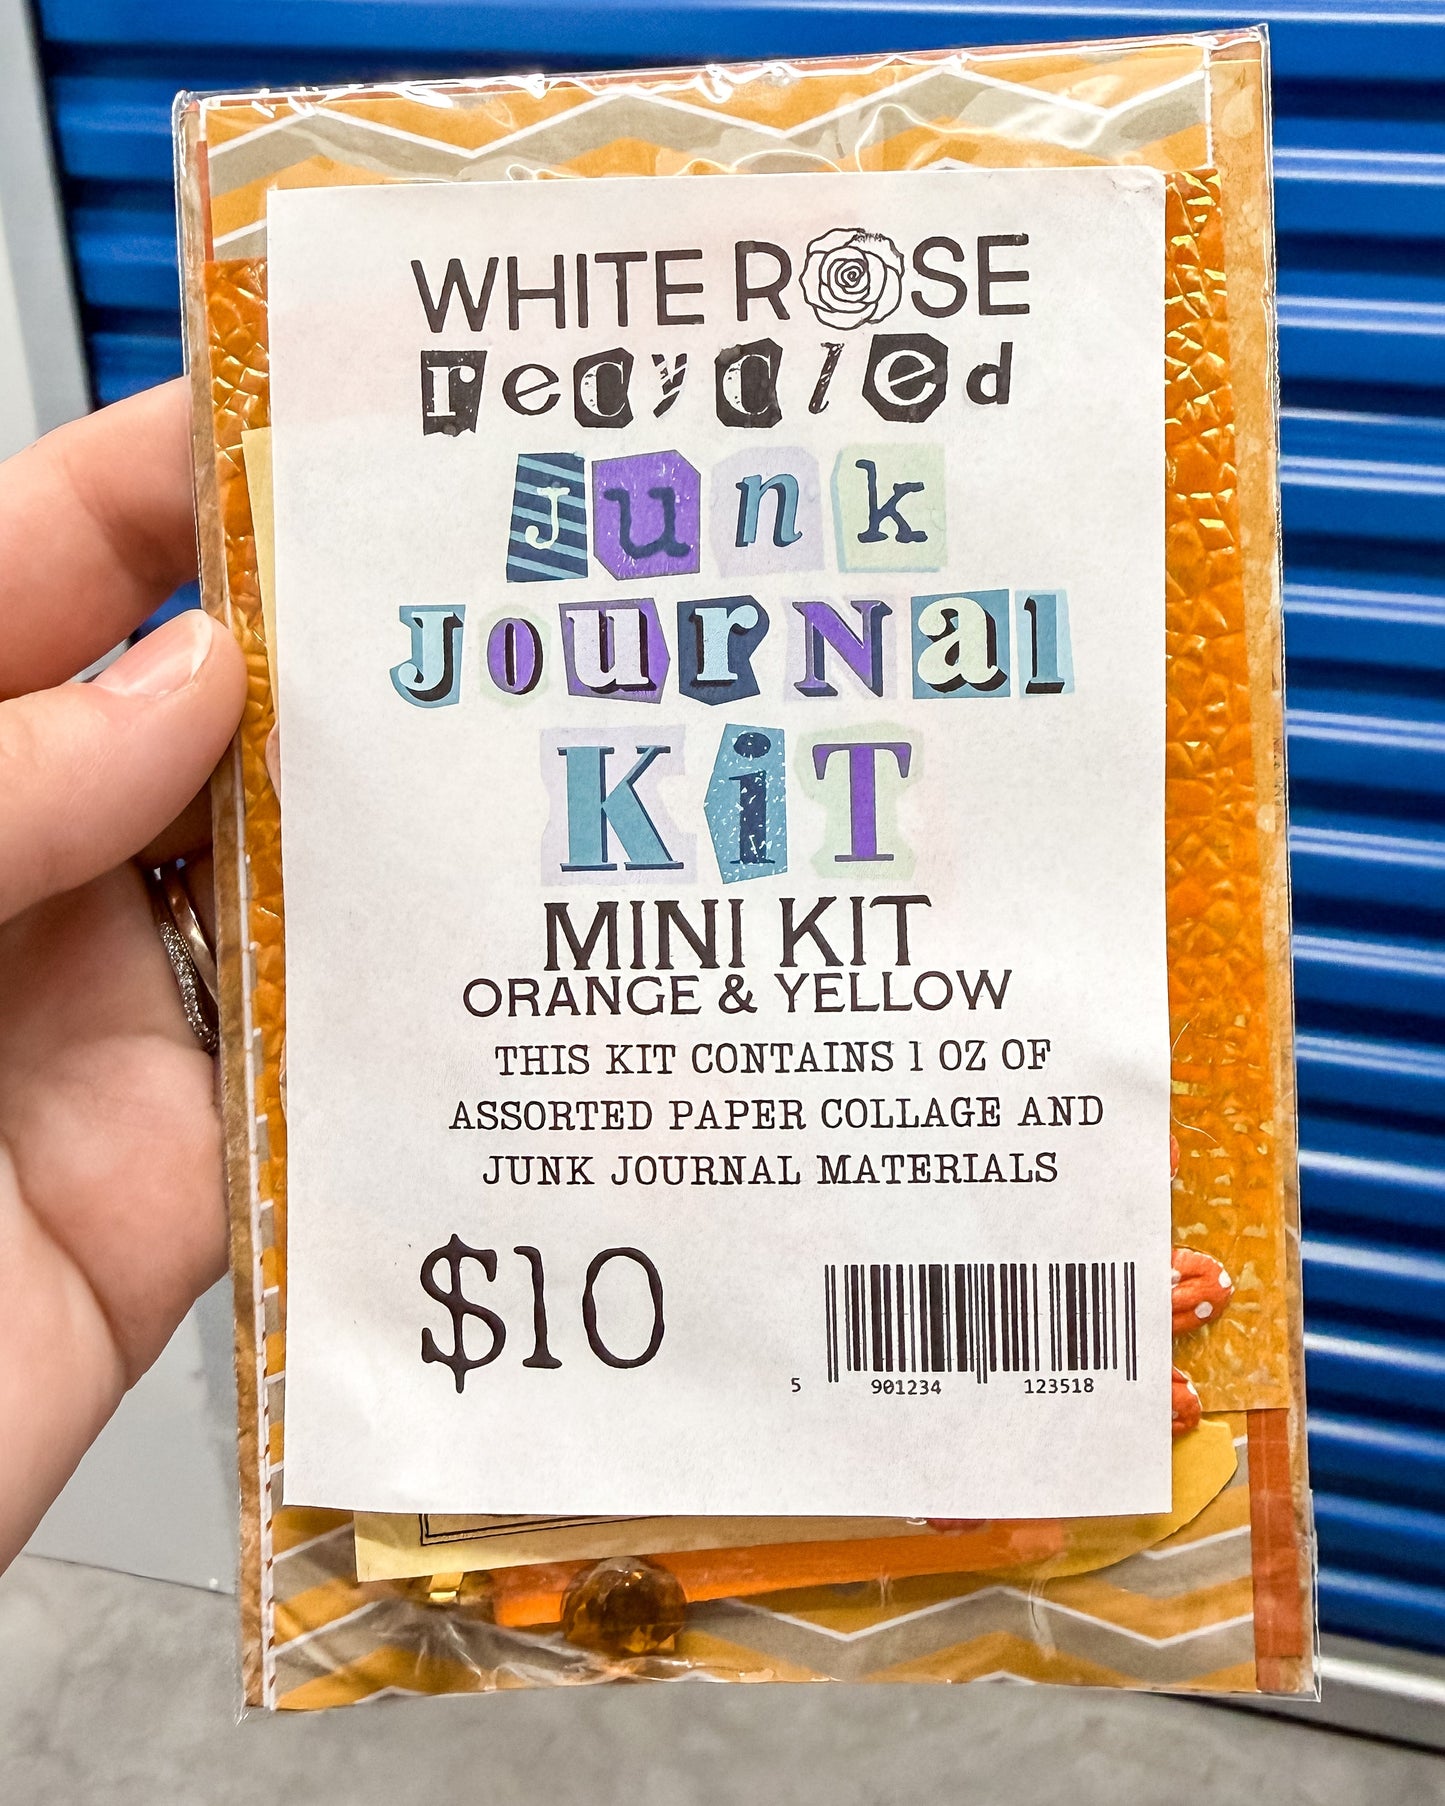 WHITE ROSE
recycled
Junk
JOurNal
KiT
MINI KIT
ORANGE & YELLOW
THIS KIT CONTAINS 1 OZ OF
ASSORTED PAPER COLLAGE AND
JUNK JOURNAL MATERIALS
$10
5 901234 123518